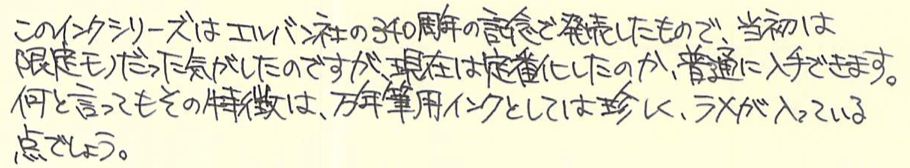 このインクシリーズはエルバン社の340周年の記念で発売したもので、当初は
限定モノだった気がしたのですが、現在は定番化したのか、普通に入手できます。
何と言ってもその特徴は、万年筆用インクとしては珍しく、ラメが入っている
点でしょう。